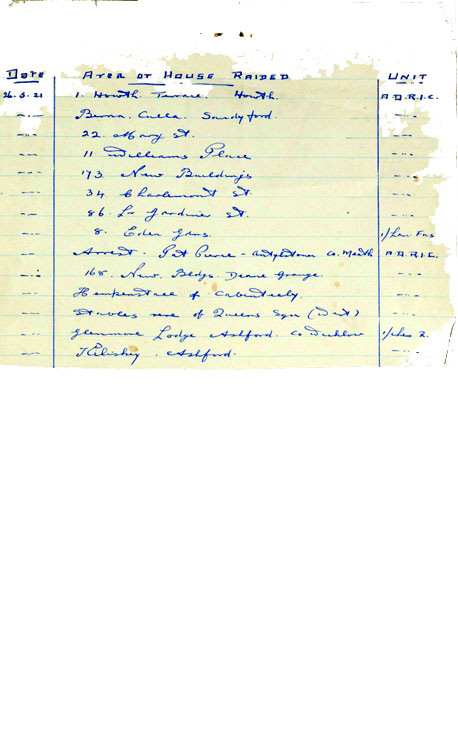 Date Area or House Raided Unit
26.5.21 1. Howth Terrace. Howth. A.D.R.I.C.
-- Berna. Culla. Sandyford --
-- 22. Mary St. --
-- 11 Williams Place --
-- 173 New Buildings --
-- 34 Charlemont St. --
-- 86. Lr Gardiner St. --
-- 8. Eden Gdns. 1/Lan. Fus
-- Arrest. Pat Pierce - Co. Meath A.D.R.I.C.
-- 168. New. Bldgs. Deans Grange --
-- of Cabinteely. --
-- Stables rere of Queens Sqr --
-- Glenmore Lodge Ashford. Co Wicklow 1/Ches R.
-- Ashford. --